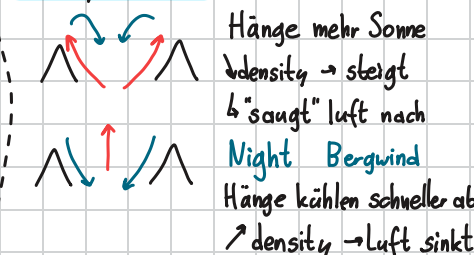 Hänge mehr Sonne
↓density → steigt
↳ "saugt" luft nach
Night Bergwind
Hänge kühlen schneller ab
↗ density → Luft sinkt